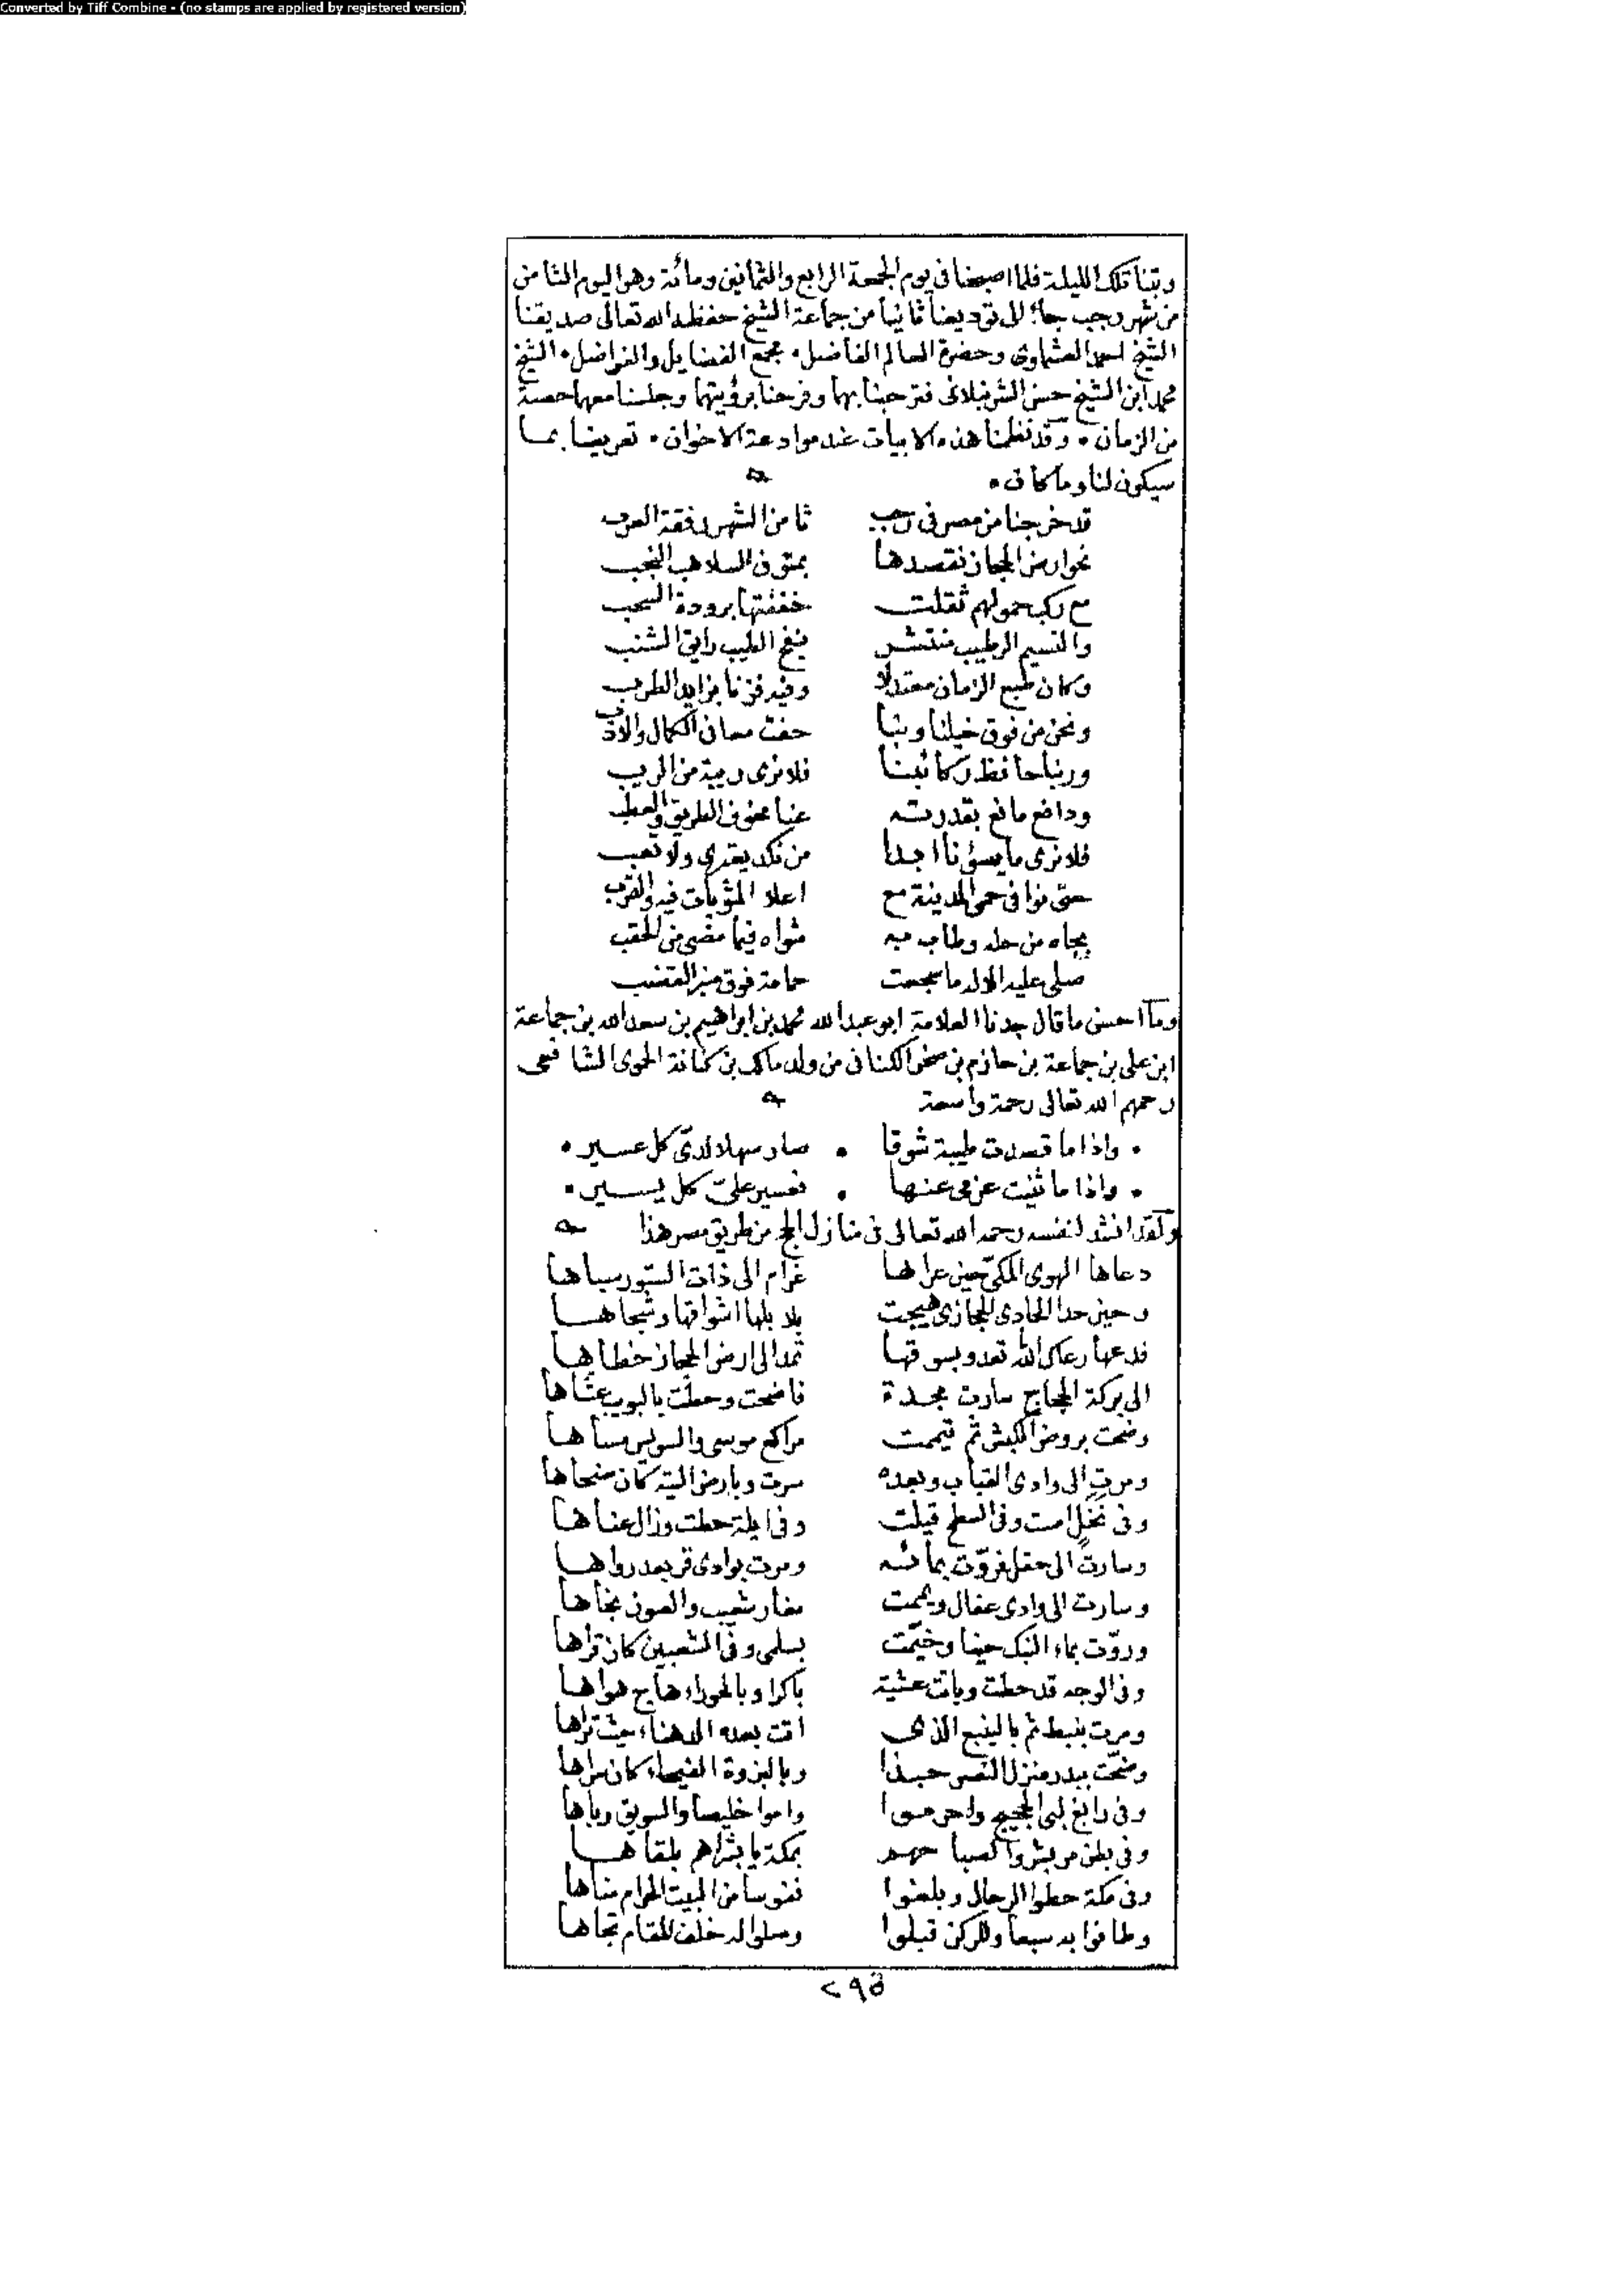 Converted by Tiff Combine - (no stamps are applied by registered version)
وبتنا تلك الليلة فلما اصبحنا فى يوم الجمعة الرابع والثمانين ومائة وهو اليوم الثامن
من شهر رجب جاء الى توديعنا ثانيا من جماعة الشيخ حفظه الله تعالى صديقنا
الشيخ احمد العشماوى وحضرة العالم الفاضل • مجمع الفضايل والفواضل • الشيخ
محمد ابن الشيخ حسن الشرنبلانى فترحبنا بهما وفرحنا برؤيتهما وجلسنا معهما حصة
من الزمان • وقد نظمنا هذه الابيات عند موادعة الاخوان • تعريضا بما
سيكون لنا وما كان •
قد خرجنا من مصر فى رجب ثامن الشهر رفقة العرب
نحو ارض الحجاز نقصدها بمتون السلاهب النجب
مع ركب حمولهم ثقلت خففتها برودة السحب
والنسيم الرطيب منتشر بنفح الطيب رايق الشنب
وكان طبع الزمان معتدلا وفيه فزنا بزايد الطرب
ونحن من فوق خيلنا وبنا حفت معانى الكمال والادب
وربنا حافظ ركائبنا فلا نرى ريبة من الريب
ودافع مانع بقدرته عنا مخوف الطريق والعطب
فلا نرى ما يسؤنا ابدا من نكد يعترى ولا تعب
حتى نوافى حمى المدينة مع اعلا المثوبات فيه والقرب
بجاه من حله وطاب به مثواه فيما مضى من الحقب
صلى عليه الاله ما سجعت حمامة فوق منبر القضب
وما احسن ما قال جدنا العلامة ابو عبد الله محمد بن ابراهيم بن سعد الله بن جماعة
ابن على بن جماعة بن حازم بن صخر الكنانى من ولد مالك بن كنانة الحموى الشافعى
رحمهم الله تعالى رحمة واسعة
• واذا ما قصدت طيبة شوقا • صار سهلا لدىّ كل عسير •
• واذا ما ثنيت عزمى عنها • فعسير علىّ كل يسير •
ولقد انشد لنفسه رحمه الله تعالى فى منازل الحج من طريق مصر هذا
دعاها الهوى المكىّ حين عراها غرام الى ذات الستور سباها
وحين حدا الحادى الحجازى هيجت بلابلها اشواقها وشجاها
فدعها رعاك الله تعدو بسوقها تمد الى ارض الحجاز خطاها
الى بركة الحجاج سارت مجدة فاضحت وحطت بالبويب عشاها
وضحت بروض الكبش ثم تيممت مراكع موسى والسويس مساها
ومرت الى وادى القباب وبعده سرت وبارض التيه كان ضحاها
وفى نخل امست وفى السطح قيلت وفى ايلة حطت وزال عناها
وسارت الى حقل فروّت بمائه ومرت بوادى قر بعد رواها
وسارت الى وادى عفال ويممت مغار شعيب والعيون تجاها
وروّت بماء النبك حينا وخيّمت بسلمى وفى الشعبين كان قراها
وفى الوجه قد حطت وباتت عشية باكرا وبالحوراء هاج هواها
ومرت بنبط ثم بالينبع الذى اتت بعده الدهناء حيث تراها
وضحّت ببدر منزل النصر حبذا وبالبزوة الفيحاء كان سراها
وفى رابغ لبى الحجيج واحرموا واموا خليصا والسويق رباها
وفى بطن مر بشروا لصباحهم بمكة يا بشراهم بلقاها
وفى مكة حطوا الرحال وبلغوا نفوسا من البيت الحرام مناها
وطافوا به سبعا وللركن قبلوا وصلوا لدى خلف المقام تجاها
٢٩٥